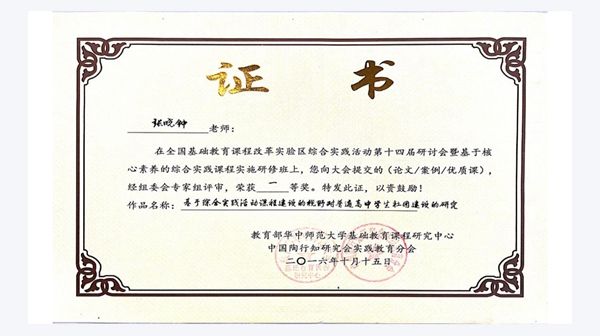 证 书
张晓钟 老师：
在全国基础教育课程改革实验区综合实践活动第十四届研讨会暨基于核
心素养的综合实践课程实施研修班上，您向大会提交的（论文/案例/优质课），
经组委会专家组评审，荣获 一 等奖。特发此证，以资鼓励！
作品名称：基于综合实践活动课程建设的视野对普通高中学生社团建设的研究
教育部华中师范大学基础教育课程研究中心
中国陶行知研究会实践教育分会
二〇一六年十月十五日